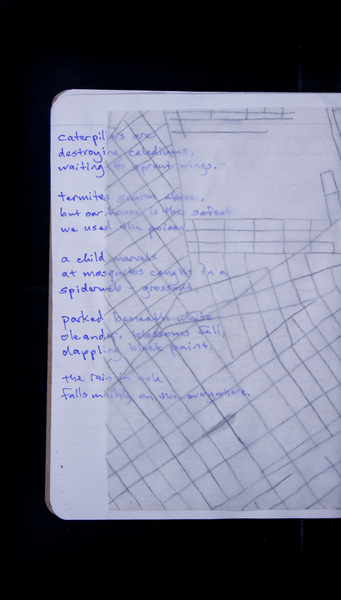 caterpillars are
destroying caladiums,
waiting to sprout wings.
termites swarm above,
but our house is the safest:
we used the poison.
a child marvels
at mosquitos caught in a
spiderweb - grossout.
parked beneath white
oleander, blossoms fall,
dappling black paint.
the rain in nola
falls mainly on the everywhere.